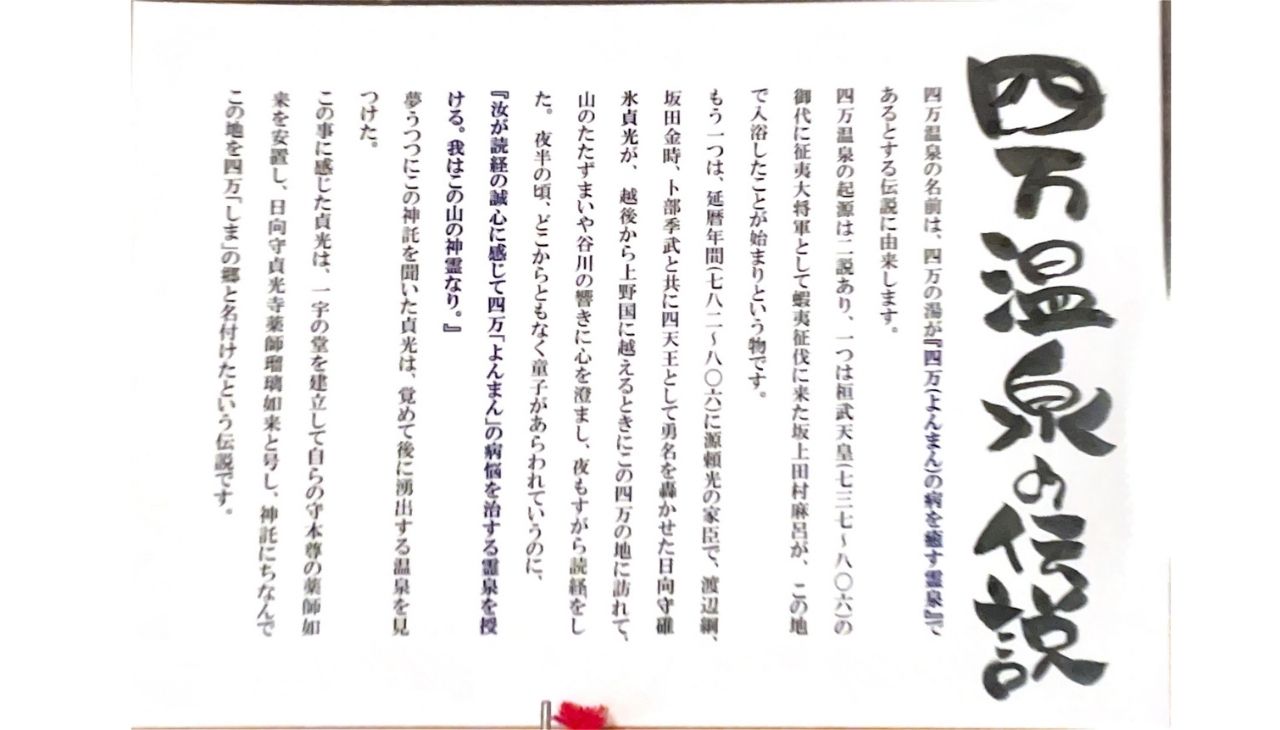 四万温泉の伝説
四万温泉の名前は、四万の湯が『四万(よんまん)の病を癒す霊泉』で
あるとする伝説に由来します。
四万温泉の起源は二説あり、一つは桓武天皇(七三七～八〇六)の
御代に征夷大将軍として蝦夷征伐に来た坂上田村麻呂が、この地
で入浴したことが始まりという物です。
もう一つは、延暦年間(七八二～八〇六)に源頼光の家臣で、渡辺綱、
坂田金時、卜部季武と共に四天王として勇名を轟かせた日向守碓
氷貞光が、越後から上野国に越えるときにこの四万の地に訪れて、
山のたたずまいや谷川の響きに心を澄まし、夜もすがら読経をし
た。夜半の頃、どこからともなく童子があらわれていうのに、
『汝が読経の誠心に感じて四万「よんまん」の病悩を治する霊泉を授
ける。我はこの山の神霊なり。』
夢うつつにこの神託を聞いた貞光は、覚めて後に湧出する温泉を見
つけた。
この事に感じた貞光は、一宇の堂を建立して自らの守本尊の薬師如
来を安置し、日向守貞光寺薬師瑠璃如来と号し、神託にちなんで
この地を四万「しま」の郷と名付けたという伝説です。